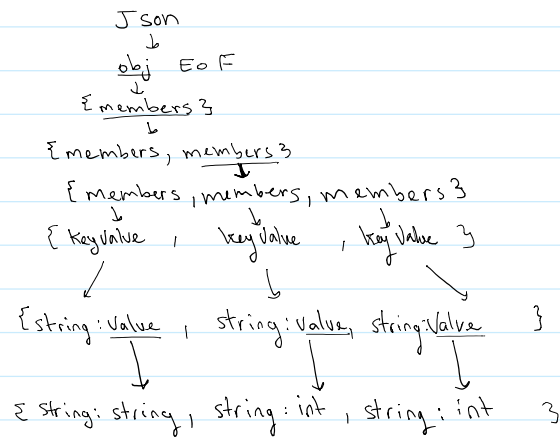 Json
obj EoF
{members}
{members, members}
{members, members, members}
{keyvalue, keyValue, keyValue}
{string: Value, string: Value, string: Value}
{string: string, string: int, string: int}